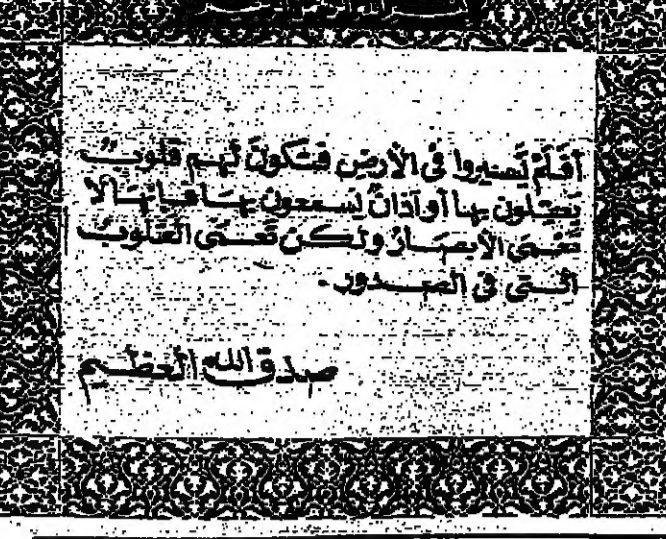 أفَلَمْ يَسيروا في الأرضِ فتكونَ لهم قلوبٌ
يعقلون بها أو آذانٌ يسمعون بها فإنها لا
تَعْمَى الأبصارُ ولكن تَعْمَى القلوبُ
التي في الصدور .
صدق الله العظيم